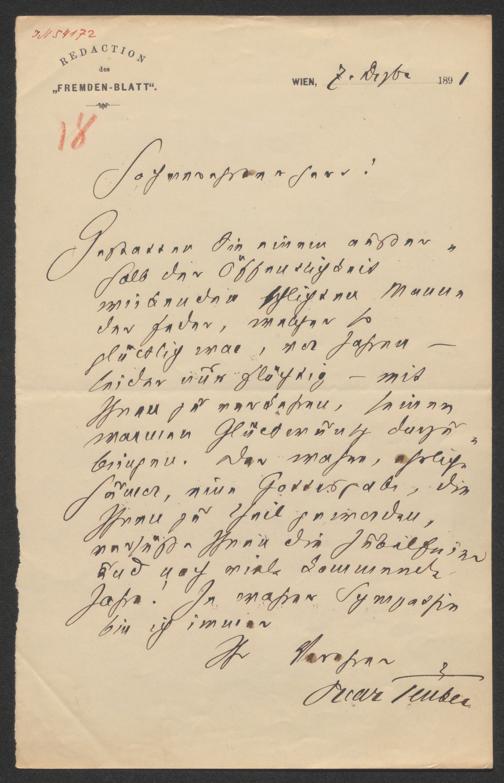 JN 54172
REDACTION
des
„FREMDEN-BLATT“.
WIEN, 7. Dezbr 1891
18
Hochverehrter Herr!
Gestatten Sie einem außer-
halb der Öffentlichkeit
wirkenden schlichten Manne
der Feder, welcher so
glücklich war, vor Jahren –
leider nur flüchtig – mit
Ihnen zu verkehren, seinen
warmen Glückwunsch darzu-
bringen. Der wahre, ehrliche
Humor, eine Gottesgabe, die
Ihnen zu Theil geworden,
versüße Ihnen die Jubelfeier
und noch viele kommende
Jahre! In wahrer Sympathie
bin ich immer
Ihr Verehrer
Oscar Teuber